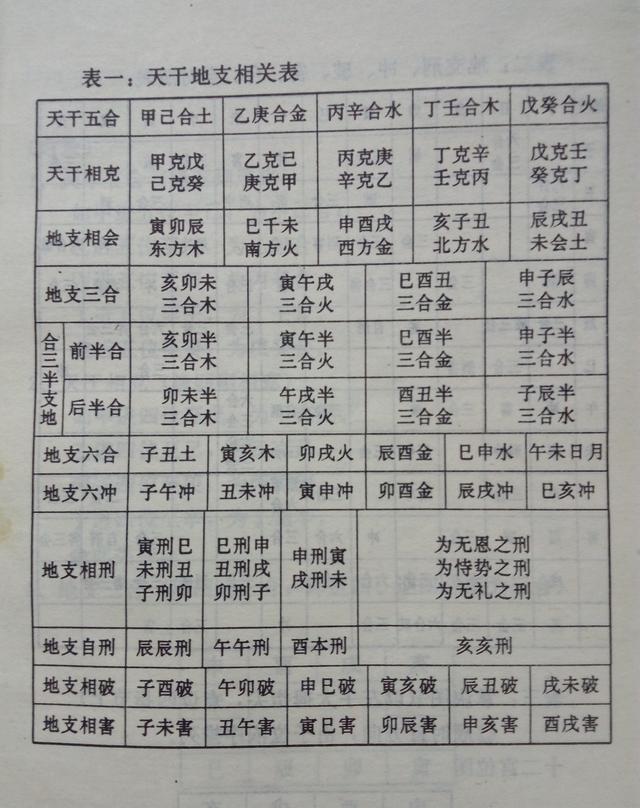 表一：天干地支相关表
天干五合 甲己合土 乙庚合金 丙辛合水 丁壬合木 戊癸合火
天干相克 甲克戊 乙克己 丙克庚 丁克辛 戊克壬
己克癸 庚克甲 辛克乙 壬克丙 癸克丁
地支相会 寅卯辰 巳千未 申酉戌 亥子丑 辰戌丑
东方木 南方火 西方金 北方水 未会土
地支三合 亥卯未 寅午戌 巳酉丑 申子辰
三合木 三合火 三合金 三合水
合三半支地 前半合 亥卯半 寅午半 巳酉半 申子半
三合木 三合火 三合金 三合水
后半合 卯未半 午戌半 酉丑半 子辰半
三合木 三合火 三合金 三合水
地支六合 子丑土 寅亥木 卯戌火 辰酉金 巳申水 午未日月
地支六冲 子午冲 丑未冲 寅申冲 卯酉金 辰戌冲 巳亥冲
地支相刑 寅刑巳 巳刑申 申刑寅 为无恩之刑
未刑丑 丑刑戌 戌刑未 为恃势之刑
子刑卯 卯刑子 为无礼之刑
地支自刑 辰辰刑 午午刑 酉本刑 亥亥刑
地支相破 子酉破 午卯破 申巳破 寅亥破 辰丑破 戌未破
地支相害 子未害 丑午害 寅巳害 卯辰害 申亥害 酉戌害